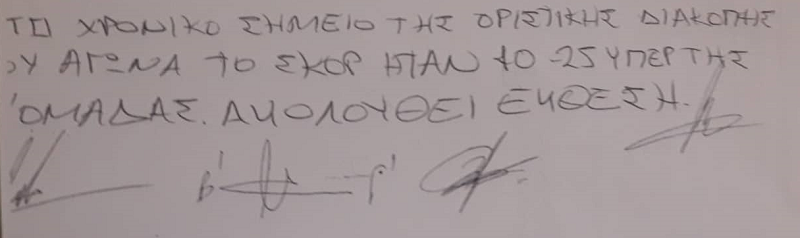 ΤΟ ΧΡΟΝΙΚΟ ΣΗΜΕΙΟ ΤΗΣ ΟΡΙΣΤΙΚΗΣ ΔΙΑΚΟΠΗΣ
ΟΥ ΑΓΩΝΑ ΤΟ ΣΚΟΡ ΗΤΑΝ 40-25 ΥΠΕΡ ΤΗΣ
ΟΜΑΔΑΣ. ΑΚΟΛΟΥΘΕΙ ΕΚΘΕΣΗ.
Β' Γ'